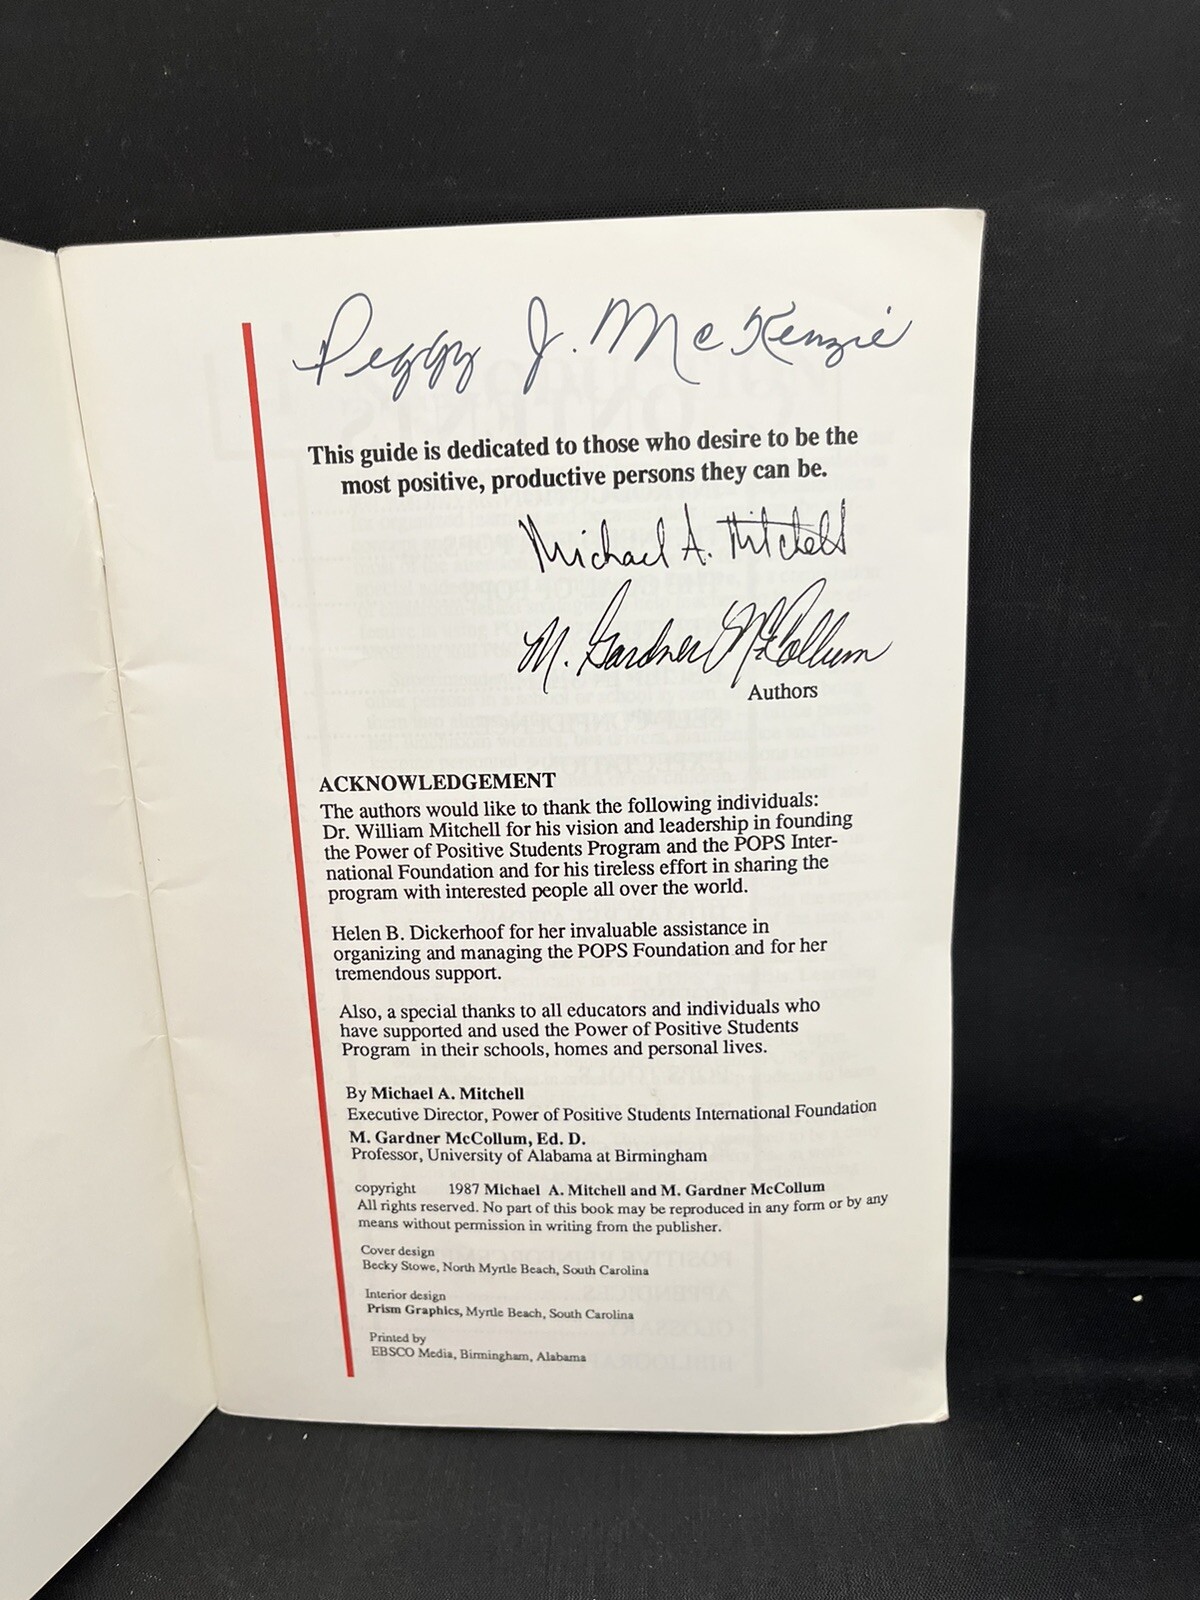 Peggy J. McKenzie
This guide is dedicated to those who desire to be the
most positive, productive persons they can be.
Michael A. Mitchell
M. Gardner McCollum
Authors
ACKNOWLEDGEMENT
The authors would like to thank the following individuals:
Dr. William Mitchell for his vision and leadership in founding
the Power of Positive Students Program and the POPS Inter-
national Foundation and for his tireless effort in sharing the
program with interested people all over the world.
Helen B. Dickerhoof for her invaluable assistance in
organizing and managing the POPS Foundation and for her
tremendous support.
Also, a special thanks to all educators and individuals who
have supported and used the Power of Positive Students
Program in their schools, homes and personal lives.
By Michael A. Mitchell
Executive Director, Power of Positive Students International Foundation
M. Gardner McCollum, Ed. D.
Professor, University of Alabama at Birmingham
copyright 1987 Michael A. Mitchell and M. Gardner McCollum
All rights reserved. No part of this book may be reproduced in any form or by any
means without permission in writing from the publisher.
Cover design
Becky Stowe, North Myrtle Beach, South Carolina
Interior design
Prism Graphics, Myrtle Beach, South Carolina
Printed by
EBSCO Media, Birmingham, Alabama